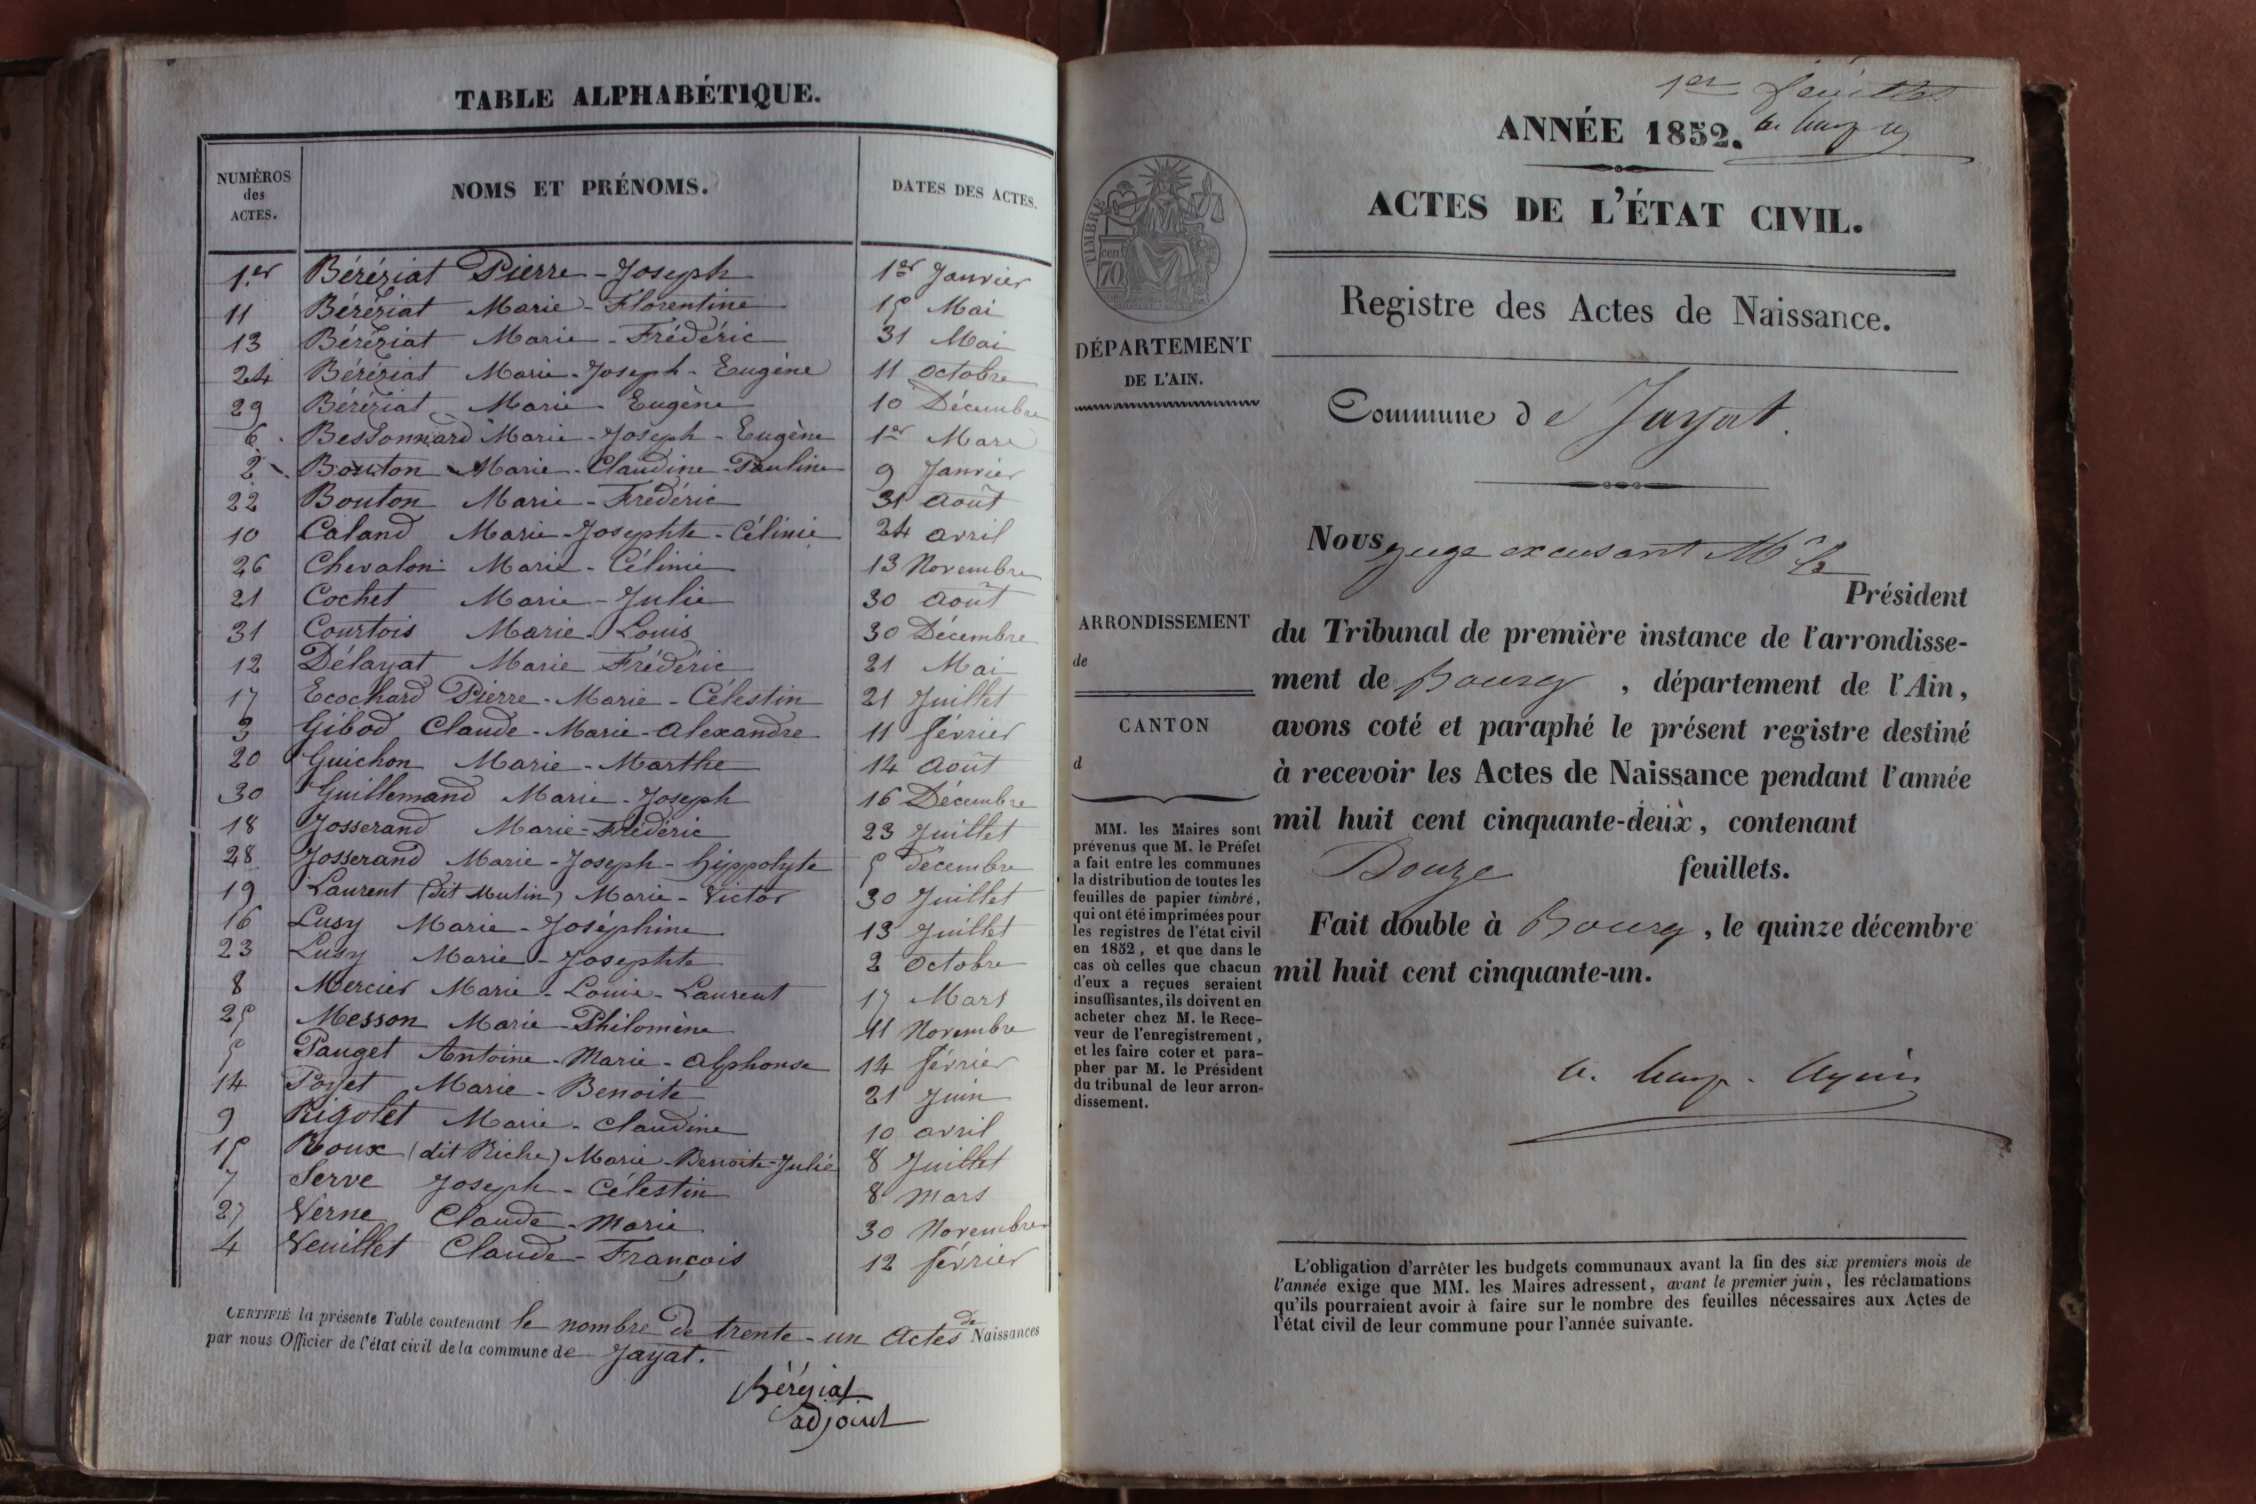 TABLE ALPHABÉTIQUE.
NUMÉROS des ACTES. NOMS ET PRÉNOMS. DATES DES ACTES.
1.er Béréziat Pierre-Joseph 1er Janvier
11 Béréziat Marie-Florentine 15 Mai
13 Béréziat Marie-Frédéric 31 Mai
24 Béréziat Marie-Joseph-Eugène 11 octobre
29 Béréziat Marie-Eugène 10 Décembre
6 Bessonnard Marie-Joseph-Eugène 1er Mars
2 Bouton Marie-Claudine-Pauline 9 Janvier
22 Bouton Marie-Frédéric 31 août
10 Caland Marie-Josephte-Célinie 24 avril
26 Chevalon Marie-Célinie 13 Novembre
21 Cochet Marie-Julie 30 août
31 Courtois Marie-Louis 30 Décembre
12 Délayat Marie Frédéric 21 Mai
17 Ecochard Pierre-Marie-Célestin 21 Juillet
3 Gibod Claude-Marie-alexandre 11 février
20 Guichon Marie-Marthe 14 août
30 Guillemand Marie-Joseph 16 Décembre
18 Josserand Marie-Frédéric 23 Juillet
28 Josserand Marie-Joseph-hyppolyte 5 décembre
19 Laurent (dit Mutin) Marie-Victor 30 Juillet
16 Lusy Marie-Joséphine 13 Juillet
23 Lusy Marie-Josephte 2 octobre
8 Mercier Marie-Louis-Laurent 17 Mars
25 Messon Marie-Philomène 11 Novembre
5 Pauget Antoine-Marie-alphonse 14 février
14 Poyet Marie-Benoite 21 Juin
9 Rigolet Marie-Claudine 10 avril
15 Roux (dit Riche) Marie-Benoite-Julie 8 Juillet
7 Serve Joseph-Célestin 8 mars
27 Verne Claude-Marie 30 Novembre
4 Veuillet Claude-François 12 février
CERTIFIÉ la présente Table contenant le nombre de trente-un actes de Naissances
par nous Officier de l'état civil de la commune de Jayat.
Béréziat
adjoint
1er feuillet
ANNÉE 1852.
ACTES DE L'ÉTAT CIVIL.
Registre des Actes de Naissance.
TIMBRE
70 cen
DÉPARTEMENT
DE L'AIN.
Commune de Jayat.
Nous juge excusant Mr le
Président
du Tribunal de première instance de l'arrondisse-
ment de Bourg, département de l'Ain,
avons coté et paraphé le présent registre destiné
à recevoir les Actes de Naissance pendant l'année
mil huit cent cinquante-deux, contenant
Douze feuillets.
Fait double à Bourg, le quinze décembre
mil huit cent cinquante-un.
ARRONDISSEMENT
de
CANTON
d
MM. les Maires sont
prévenus que M. le Préfet
a fait entre les communes
la distribution de toutes les
feuilles de papier timbré,
qui ont été imprimées pour
les registres de l'état civil
en 1852, et que dans le
cas où celles que chacun
d'eux a reçues seraient
insuffisantes, ils doivent en
acheter chez M. le Rece-
veur de l'enregistrement,
et les faire coter et para-
pher par M. le Président
du tribunal de leur arron-
dissement.
L'obligation d'arrêter les budgets communaux avant la fin des six premiers mois de
l'année exige que MM. les Maires adressent, avant le premier juin, les réclamations
qu'ils pourraient avoir à faire sur le nombre des feuilles nécessaires aux Actes de
l'état civil de leur commune pour l'année suivante.